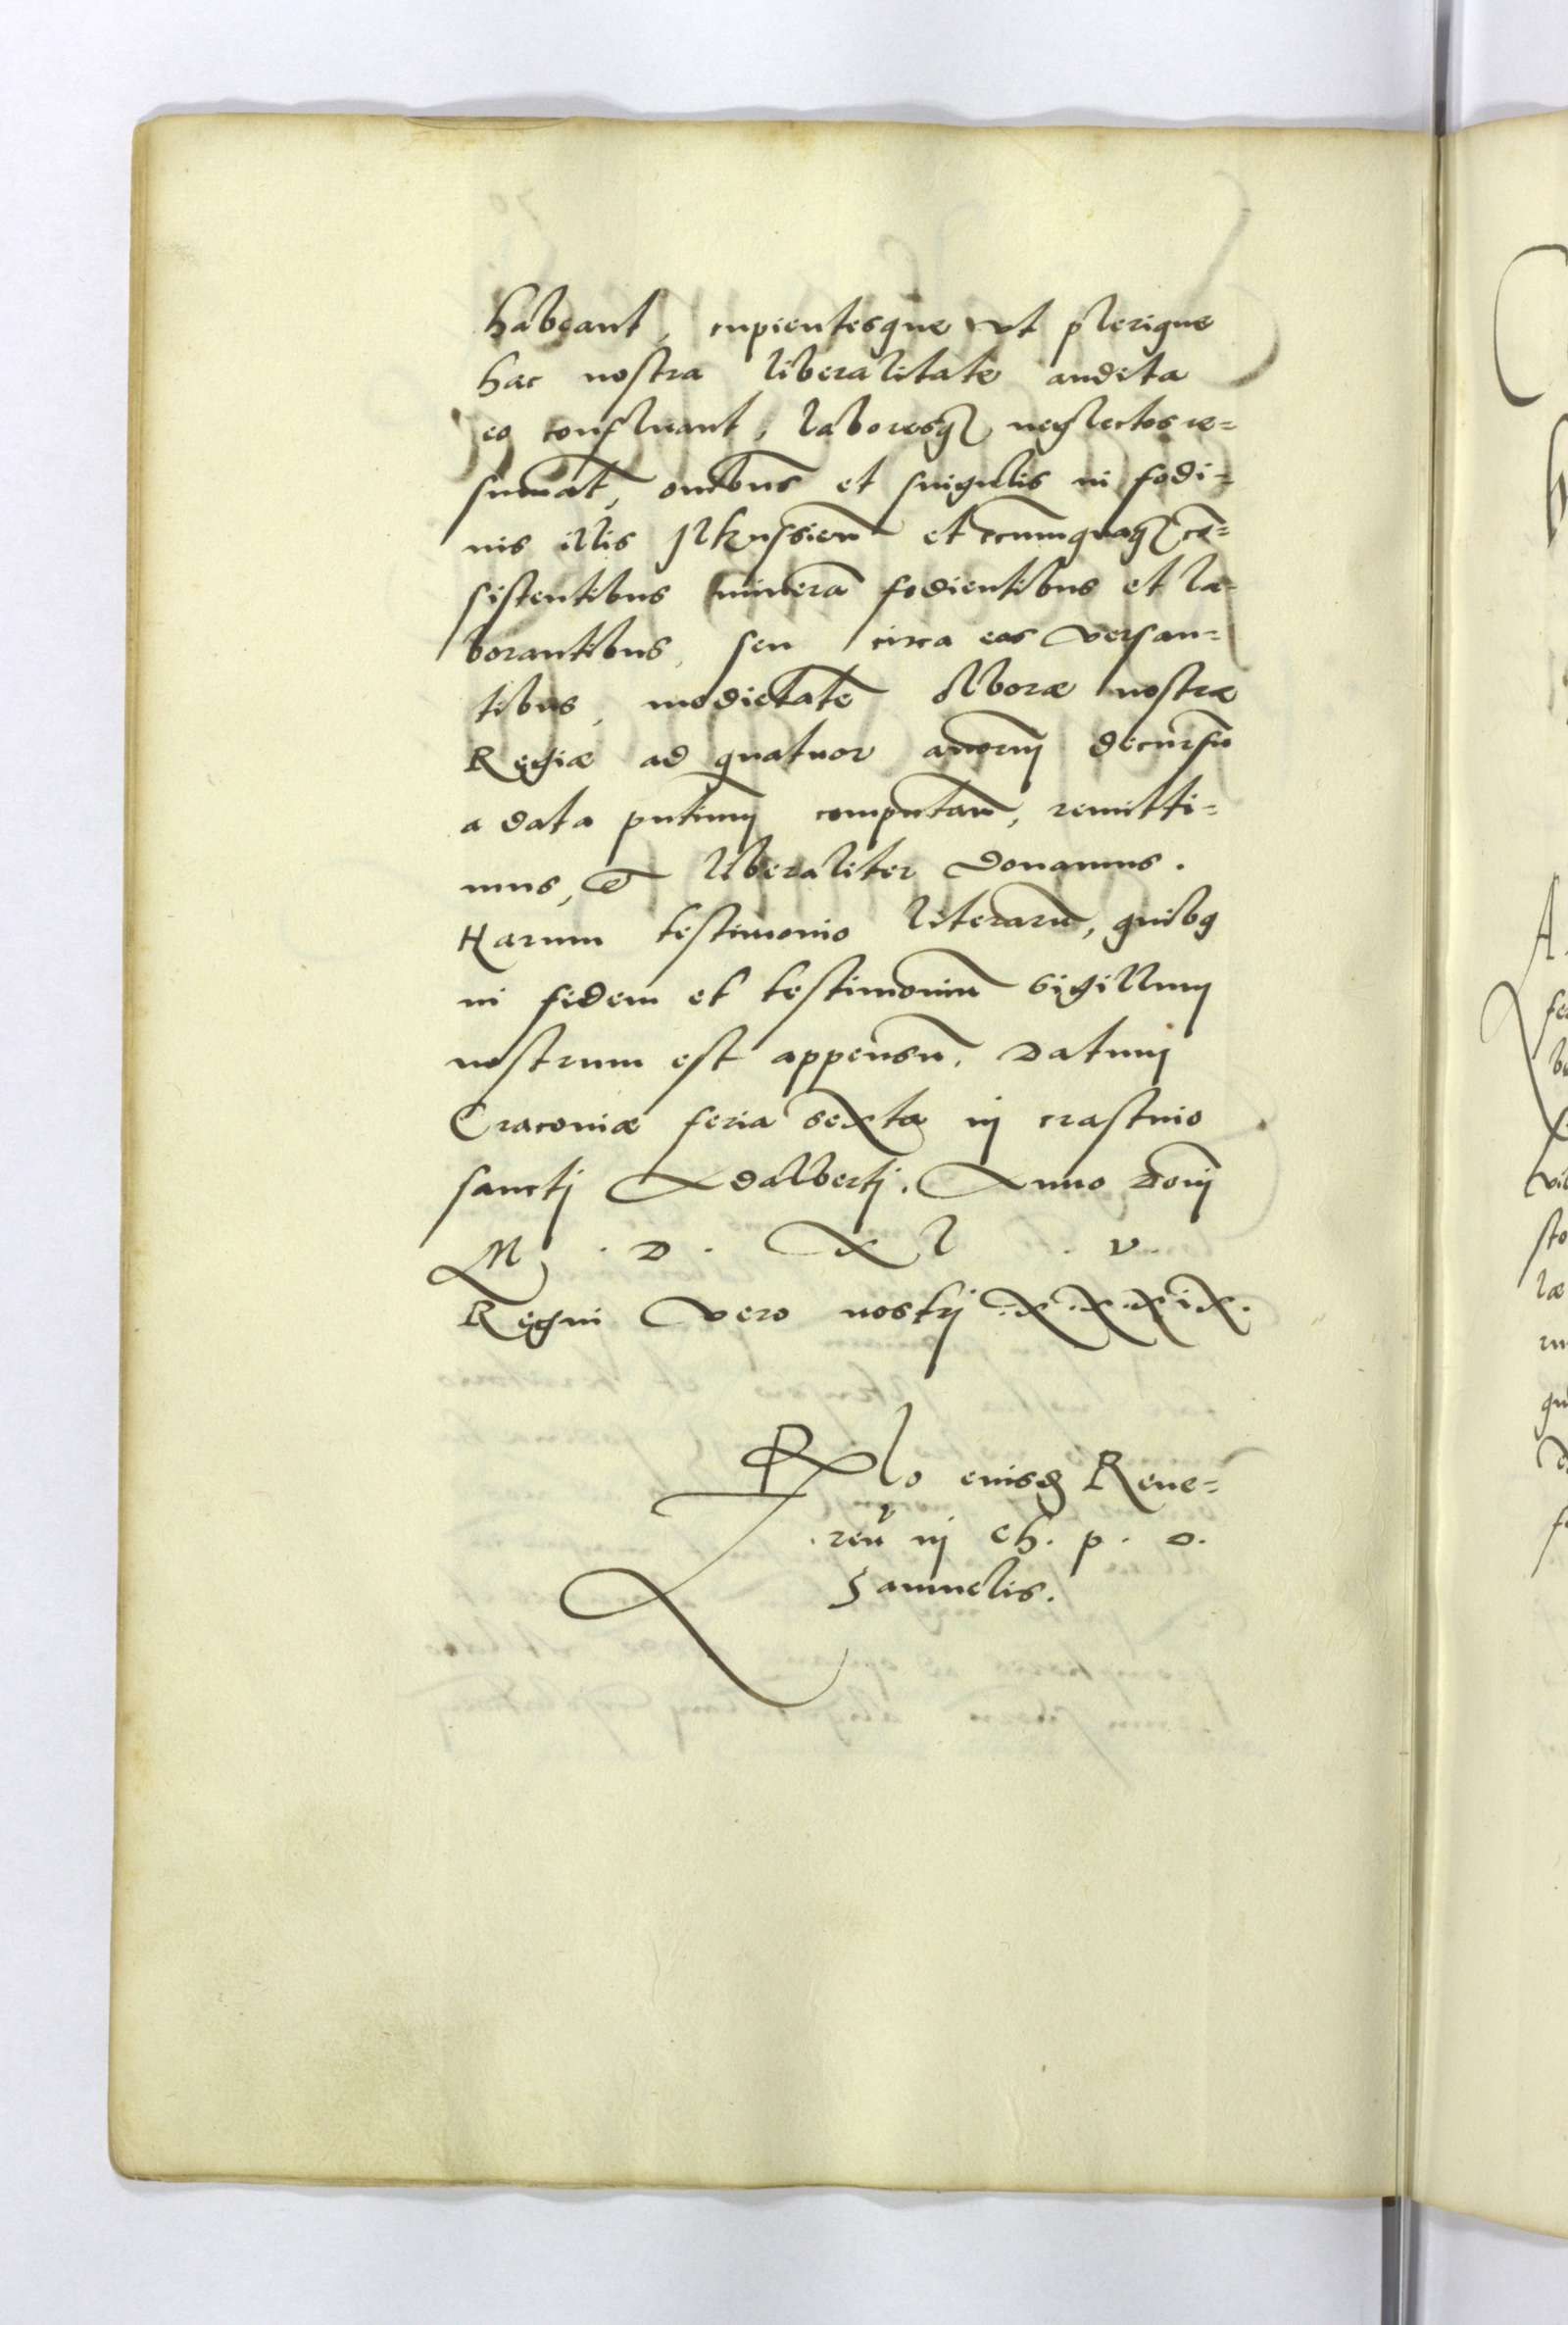 habeant, cupientesque ut plerique
hac nostra liberalitate audita
eo confluant, laboresq neglectos re=
sumāt, omibus et singulis in fodi=
nis illis Ilkussien et circumquaq cō=
sistentibus minerā fodientibus et la-
borantibus, seu circa eas versan=
tibus, medietatē Olboræ nostræ
Regiæ ad quatuor annorum decursū
a data pntium computan, remitti=
mus, et liberaliter donamus.
Harum testimonio literarū, quibq
in fidem et testimoniū Sigillum
nostrum est appensū. Datum
Cracoviæ feria sexta in crastino
sancti Adalberti. Anno Domi
M . D . X L . V.
Regni vero nostri .X.X.X.i.X.
Rlo eiusdē Reve=
ren in Ch. p. D.
Samuelis.